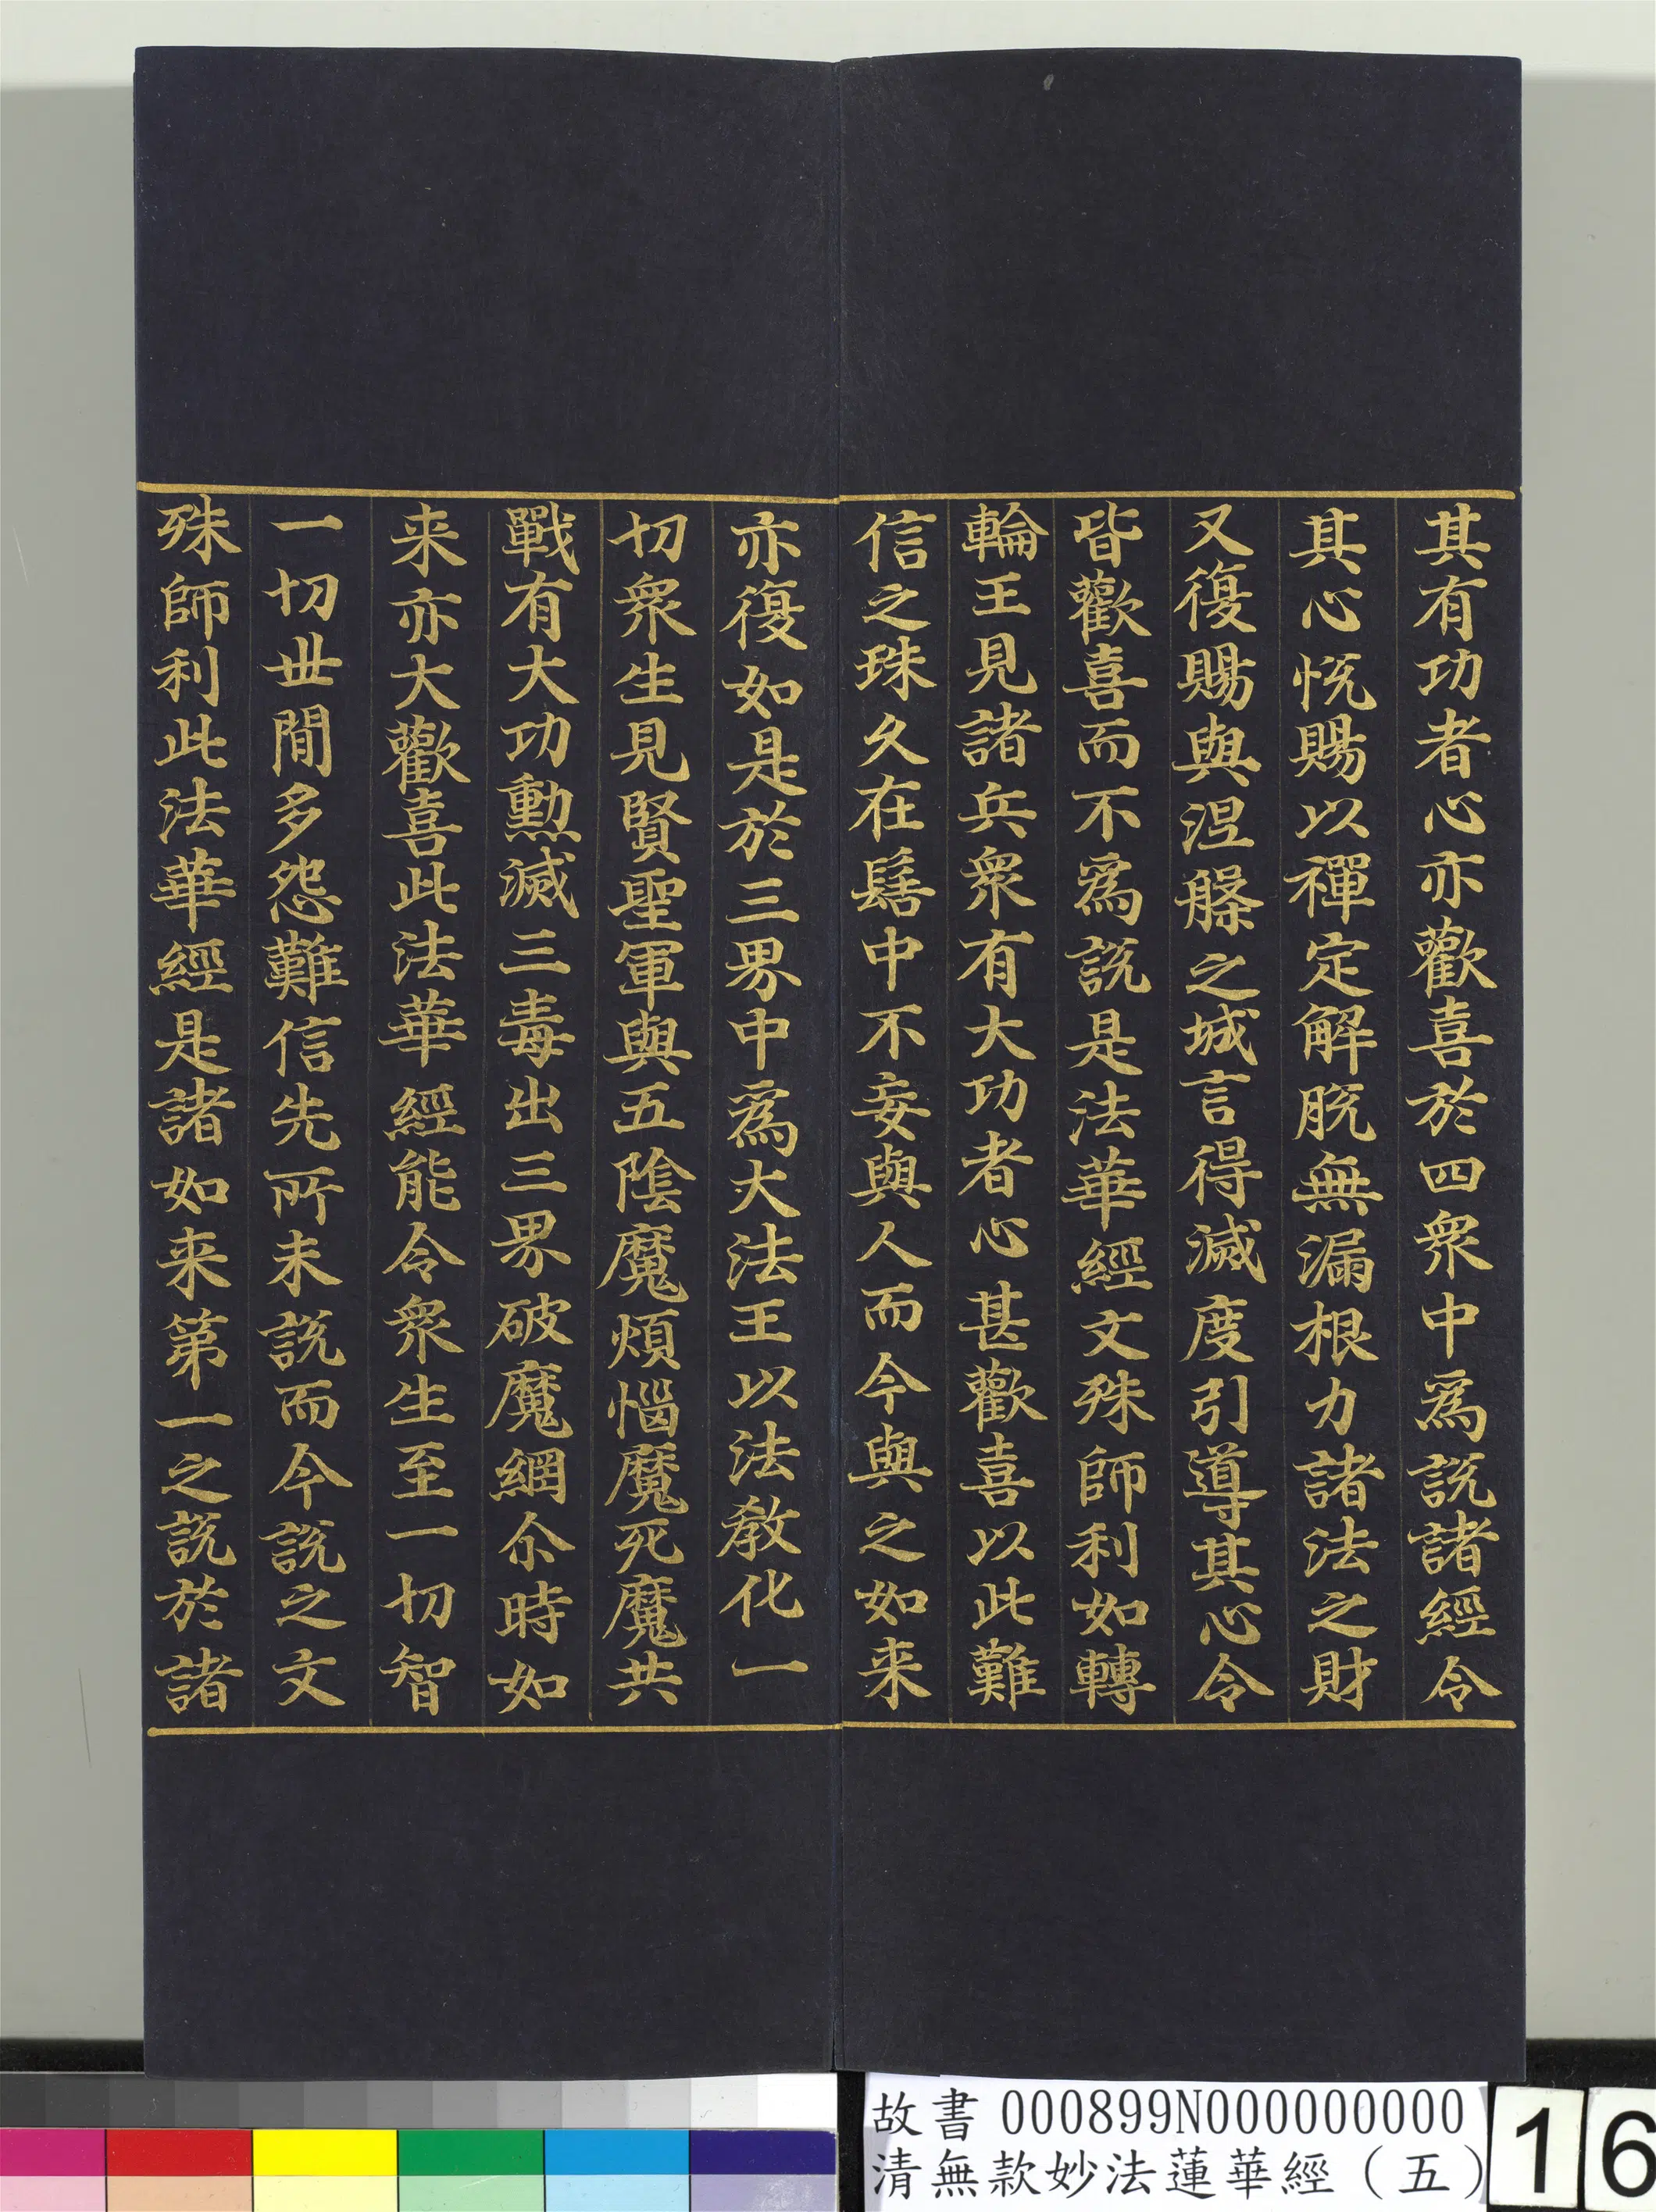 其有功者心亦歡喜於四衆中爲說諸經令
其心悅賜以禪定解脫無漏根力諸法之財
又復賜與涅槃之城言得滅度引導其心令
皆歡喜而不爲說是法華經文殊師利如轉
輪王見諸兵衆有大功者心甚歡喜以此難
信之珠久在髻中不妄與人而今與之如来
亦復如是於三界中爲大法王以法教化一
切衆生見賢聖軍與五陰魔煩惱魔死魔共
戰有大功勳滅三毒出三界破魔網尒時如
来亦大歡喜此法華經能令衆生至一切智
一切世間多怨難信先所未說而今說之文
殊師利此法華經是諸如来第一之說於諸
故書 000899N000000000
清無款妙法蓮華經（五）
16